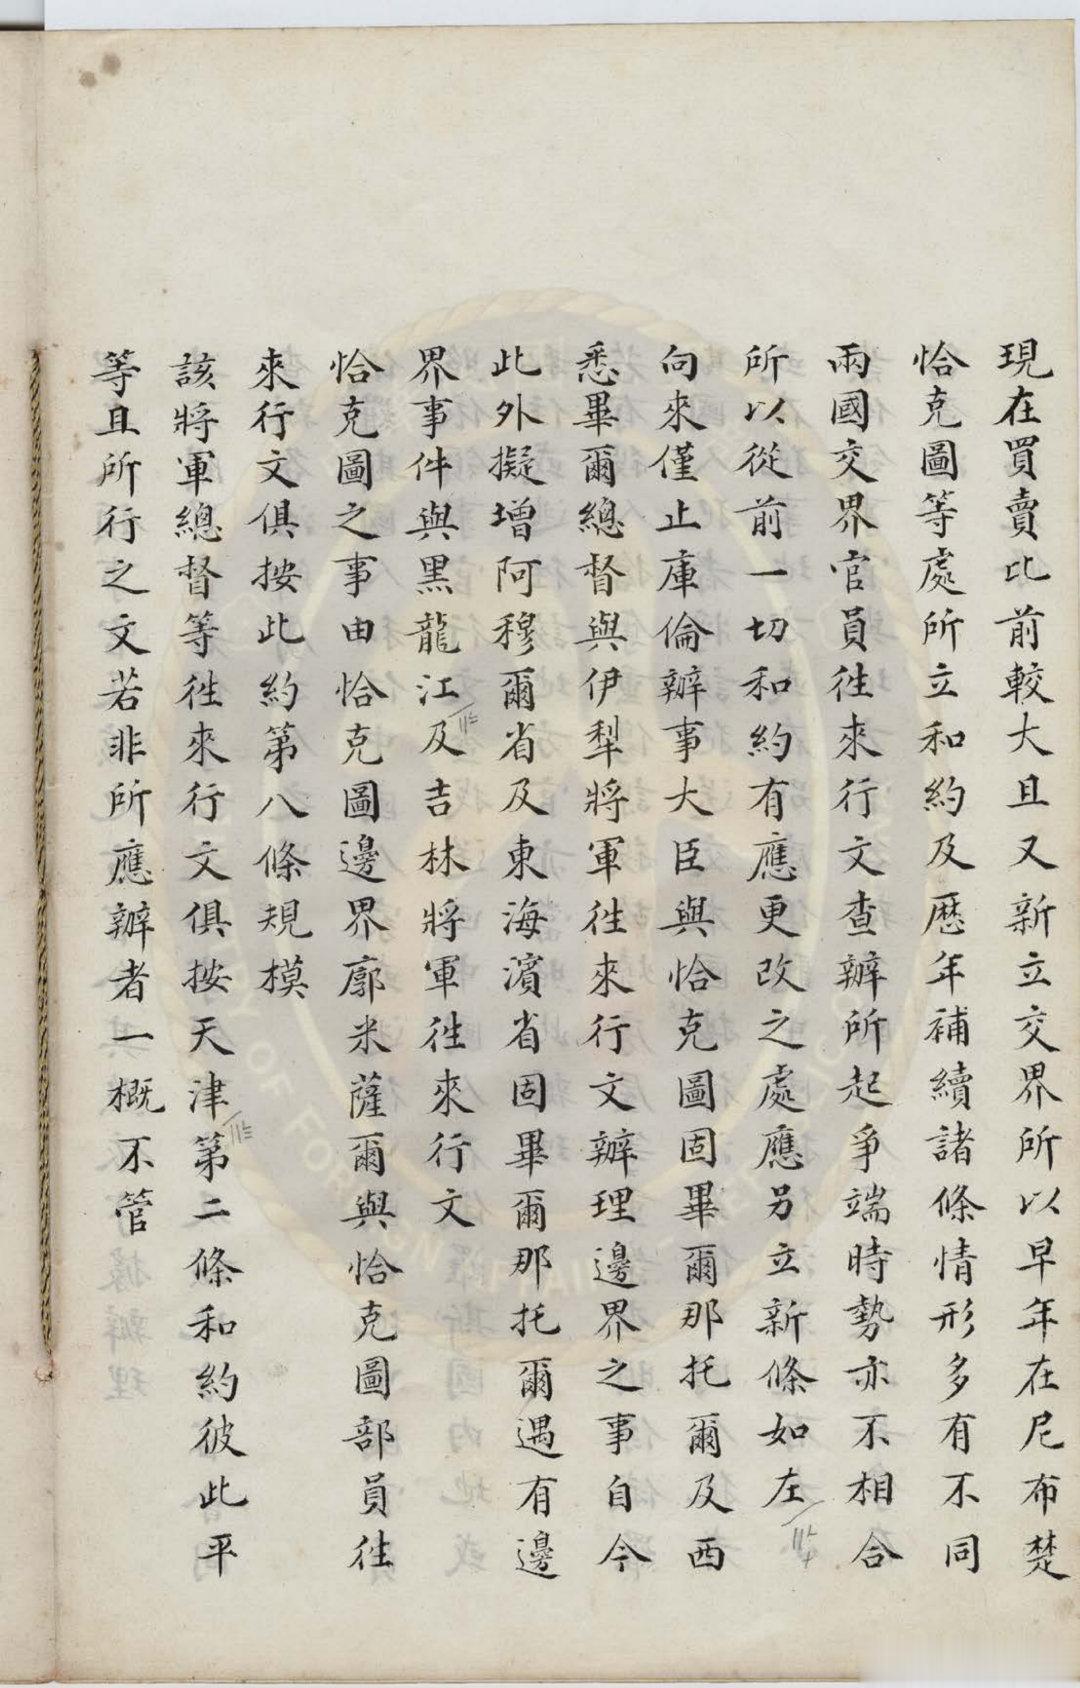 現在買賣比前較大且又新立交界所以早年在尼布楚
恰克圖等處所立和約及歷年補續諸條情形多有不同
兩國交界官員徃來行文查辦所起爭端時勢亦不相合
所以從前一切和約有應更改之處應另立新條如左
向來僅止庫倫辦事大臣與恰克圖固畢爾那托爾及西
悉畢爾總督與伊犁將軍徃來行文辦理邊界之事自今
此外擬增阿穆爾省及東海濱省固畢爾那托爾遇有邊
界事件與黑龍江及吉林將軍徃來行文
恰克圖之事由恰克圖邊界廓米薩爾與恰克圖部員徃
來行文俱按此約第八條規模
該將軍總督等徃來行文俱按天津第二條和約彼此平
等且所行之文若非所應辦者一概不管